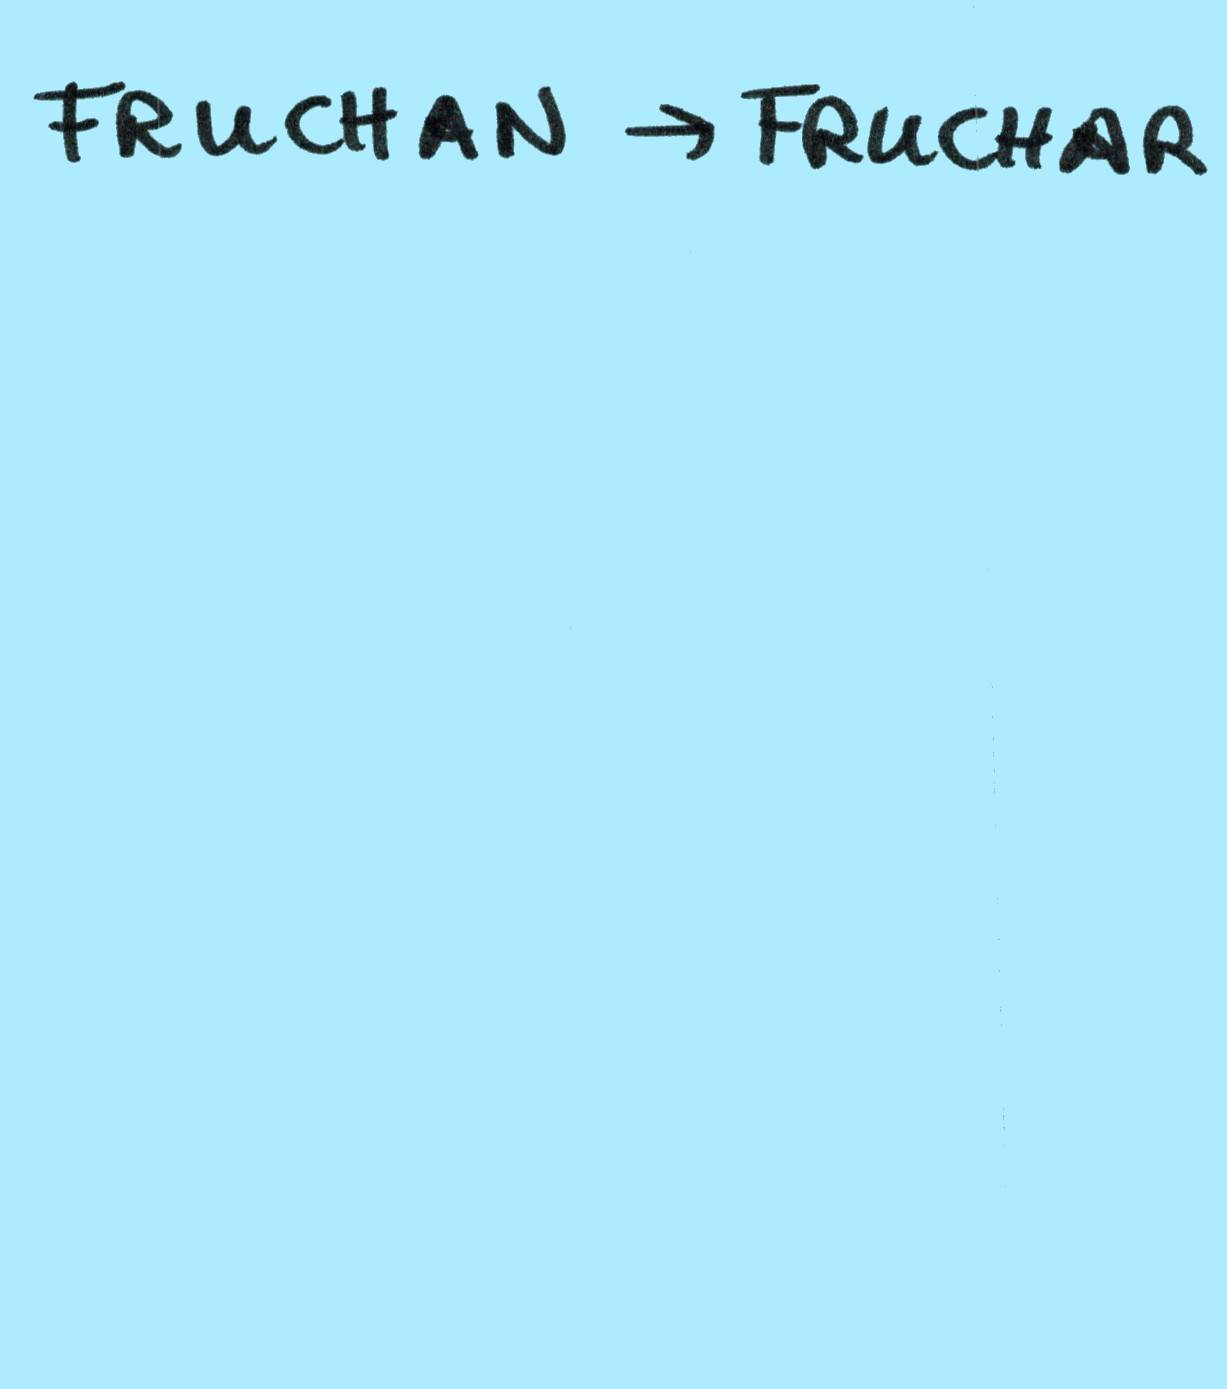 FRUCHAN → FRUCHAR